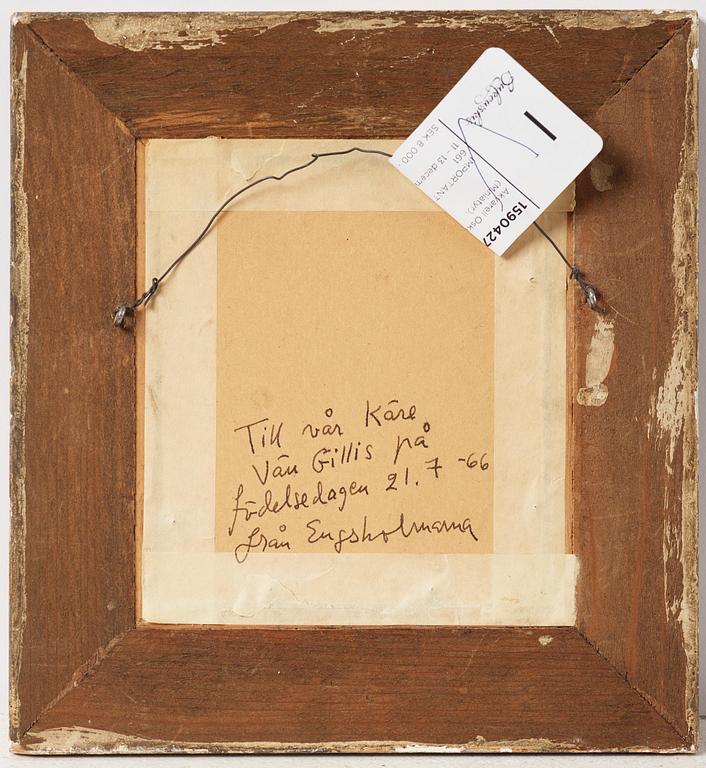 Bukowskis
1
1590427
Akvarell Osk
(Miniatyr).
IMPORTANT
661
11 - 13 decem
SEK 8 000
Till vår Käre
Vän Gillis på
födelsedagen 21.7 -66
från Engsholmarna